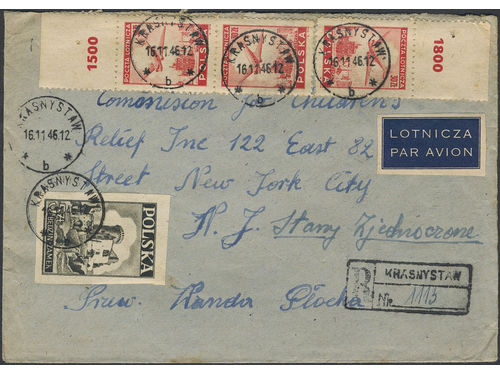 1500
POCZTA LOTNICZA
POLSKA
POCZTA LOTNICZA
POLSKA
POCZTA LOTNICZA
POLSKA
1800
KRASNYSTAW
16.11.46.12
b
KRASNYSTAW
16.11.46.12
b
KRASNYSTAW
16.11.46.12
b
KRASNYSTAW
16.11.46.12
b
Commission for Children's
Relief Inc 122 East 82
Street New York City
N. J. Stany Zjednoczone
LOTNICZA
PAR AVION
KRASNYSTAW
POLSKA
R
KRASNYSTAW
Nr. 1113
Wanda Płocha